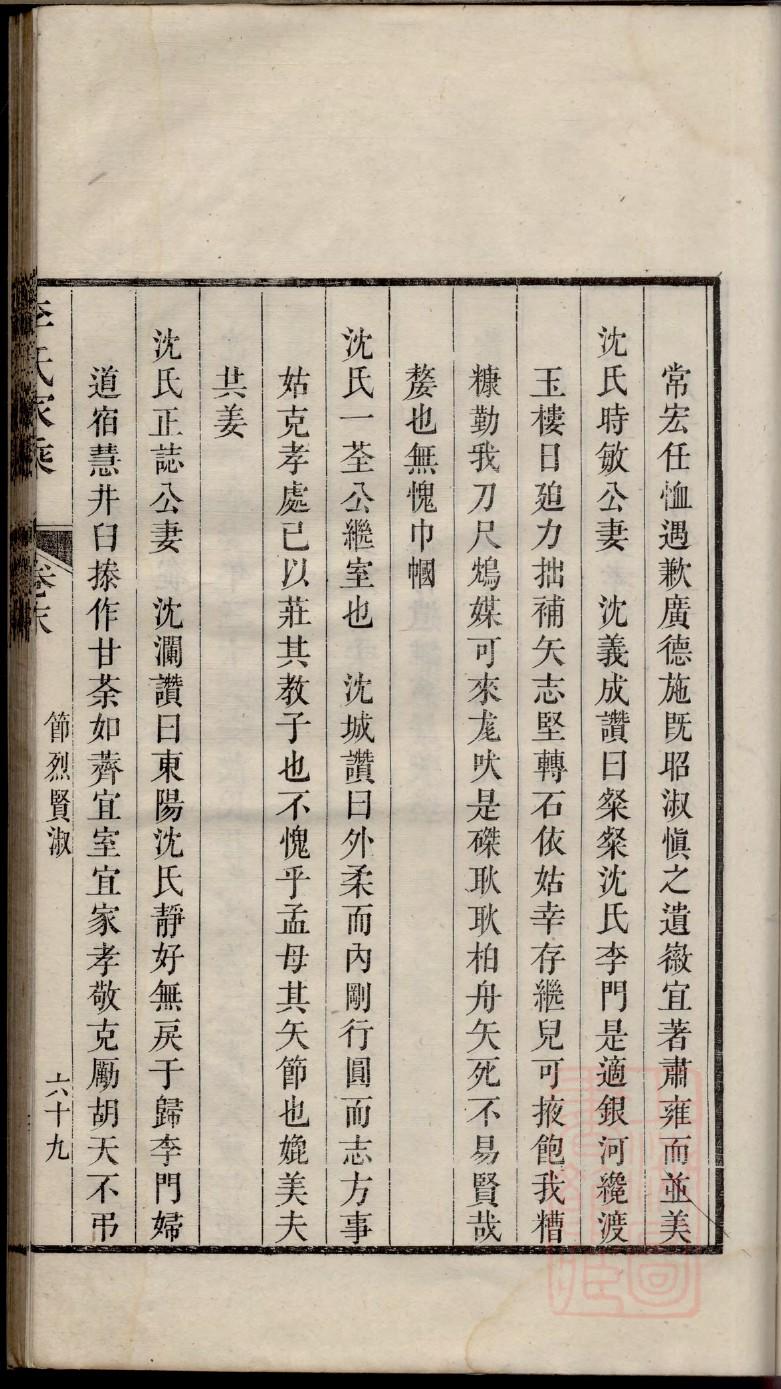 常宏任恤遇歉廣德施既昭淑慎之遺徽宜著肅雍而並美
沈氏時敏公妻　沈義成讚曰粲粲沈氏李門是適銀河纔渡
玉樓日廹力拙補矢志堅轉石依姑幸存繼兒可掖飽我糟
糠勤我刀尺鴆媒可來尨吠是磔耿耿柏舟矢死不易賢哉
嫠也無愧巾幗
沈氏一荃公繼室也　沈城讚曰外柔而內剛行圓而志方事
姑克孝處已以莊其教子也不愧乎孟母其矢節也媲美夫
共姜
沈氏正誌公妻　沈瀾讚曰東陽沈氏靜好無戾于歸李門婦
道宿慧井臼捺作甘荼如薺宜室宜家孝敬克勵胡天不弔
李氏家乘　卷末　節烈賢淑　六十九